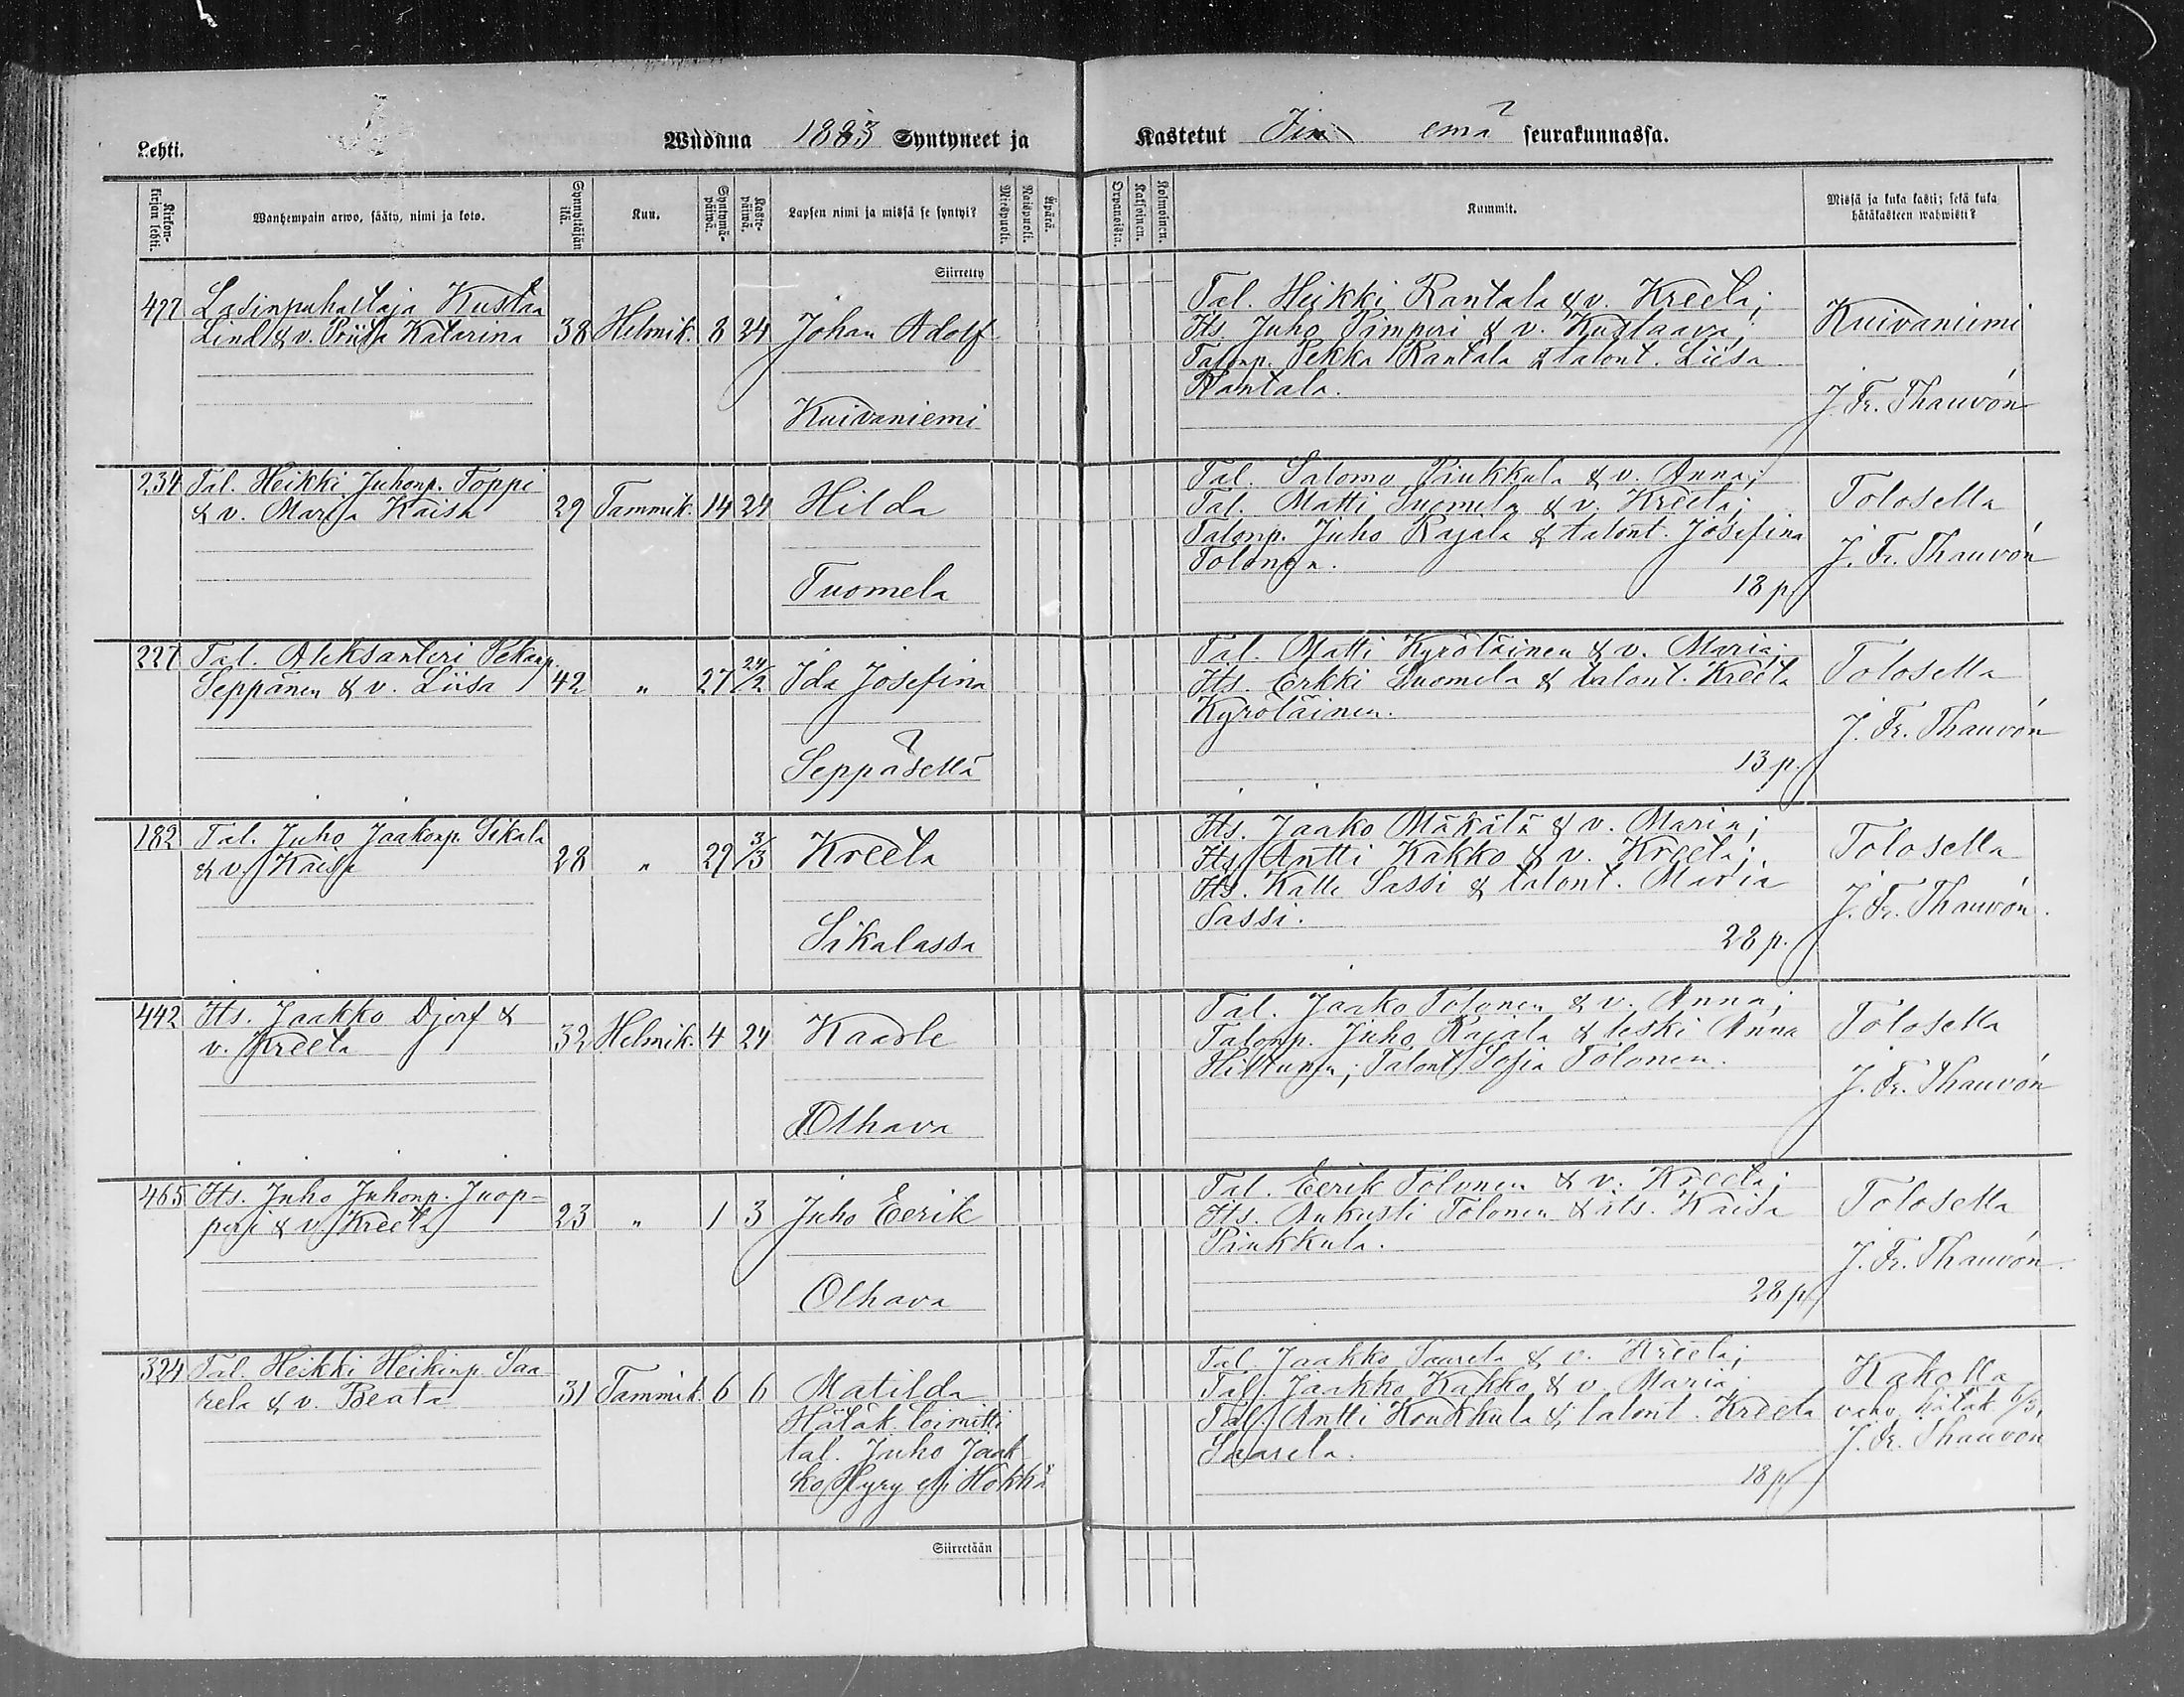 Lehti.
Wuonna 1883 Syntyneet ja
Kastetut Iin emä seurakunnassa.
Kirkonkirjan lehti.
Wanhempain arwo, sääty, nimi ja koto.
Synnyttäjän ikä.
Kuu.
Syntymäpäiwä.
Kastepäiwä.
Lapsen nimi ja missä se syntyi?
Miespuoli.
Naispuoli.
Äpärä.
Orpanoista.
Kaksoinen.
Kolmoinen.
Kummit.
Missä ja kuka kasti; sekä kuka
hätäkasteen wahwisti?
Siirretty
477 Lasinpuhaltaja Kustaa
Lind & v. Priita Katarina 38 Helmik. 8 24 Johan Adolf
Kuivaniemi
Tal. Heikki Rantala & v. Kreeta;
Its. Juho Pimperi & v. Kustaava;
Talonp. Pekka Rantala & talont. Liisa
Rantala.
Kuivaniemi
J. Fr. Thauvón
234 Tal. Heikki Juhonp. Toppi
& v. Marja Kaisa 29 Tammik. 14 24 Hilda
Tuomela
Tal. Salomo Pinkkula & v. Anna;
Tal. Matti Tuomela & v. Kreeta;
Talonp. Juho Rajala & talont. Josefina
Tolonen.
18 p.
Tolosella
J. Fr. Thauvón
227 Tal. Aleksanteri Pekanp.
Seppänen & v. Liisa 42 " 27 24/2 Ida Josefina
Seppäsellä
Tal. Matti Kyröläinen & v. Maria;
Its. Erkki Tuomela & talont. Kreeta
Kyröläinen.
13 p.
Tolosella
J. Fr. Thauvón
182 Tal. Juho Jaakonp. Sikala
& v. Kaisa 28 " 29 3/3 Kreeta
Sikalassa
Its. Jaako Mäkälä & v. Maria;
Its. Antti Kakko & v. Kreeta;
Its. Kalle Sassi & talont. Maria
Sassi.
28 p.
Tolosella
J. Fr. Thauvón.
442 Its. Jaakko Djerf &
v. Kreeta 32 Helmik. 4 24 Kaarle
Olhava
Tal. Jaako Tolonen & v. Anna;
Talonp. Juho Rajala & leski Anna
Hiltunen; Talont. Sofia Tolonen.
Tolosella
J. Fr. Thauvón
465 Its. Juho Juhonp. Juop-
peri & v. Kreeta 23 " 1 3 Juho Eerik
Olhava
Tal. Eerik Tolonen & v. Kreeta;
Its. Aukusti Tolonen & its. Kaisa
Pinkkula.
28 p.
Tolosella
J. Fr. Thauvón.
324 Tal. Heikki Heikinp. Saa
rela & v. Beata 31 Tammik. 6 6 Matilda
Hätäk. toimitti
tal. Juho Jaak
ko Hyry eli Hökkä
Tal. Jaakko Saarela & v. Kreeta;
Tal. Jaakko Kakko & v. Maria;
Tal. Antti Koukkula & talont. Kreeta
Saarela.
18 p.
Kakolla
vahv. hätäk. 6/3,
J. Fr. Thauvón
Siirretään